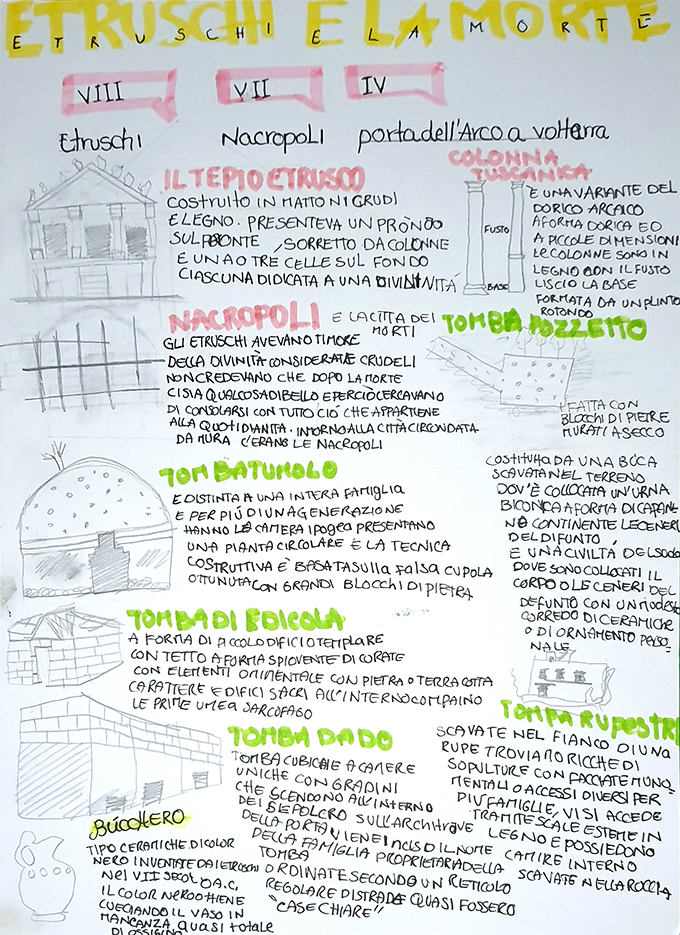 ETRUSCHI E LA MORTE
ETRUSCHI E LA MORTE
VIII
VII
IV
Etruschi
Nacropoli
porta dell'Arco a volterra
IL TEPIO ETRUSCO
COSTRUITO IN MATTONI CRUDI
E LEGNO. PRESENTEVA UN PRÒNDO
SUL FRONTE, SORRETTO DA COLONNE
E UNA O TRE CELLE SUL FONDO
CIASCUNA DIDICATA A UNA DIVINITÁ
COLONNA
TUSCANICA
FUSTO
BASE
E UNA VARIANTE DEL
DORICO ARCAICO
A FORMA DORICA ED
A PICCOLE DIMENSIONI
LE COLONNE SONO IN
LEGNO CON IL FUSTO
LISCIO LA BASE
FORMATA DA UN PLINTO
ROTONDO
NACROPOLI E LA CITTA DEI
MORTI
GLI ETRUSCHI AVEVANO TIMORE
DELLA DIVINITÀ CONSIDERATE CRUDELI
NON CREDEVANO CHE DOPO LA MORTE
CI SIA QUALCOSA DI BELLO E PERCIÒ CERCAVANO
DI CONSOLARSI CON TUTTO CIÓ CHE APPARTIENE
ALLA QUOTIDIVANITA. INTORNO ALLA CITTÀ CIRCONDATA
DA MURA C'ERANO LE NACROPOLI
TOMBA POZZETTO
FATTA CON
BLOCCHI DI PIETRE
MURATI A SECCO
COSTITUITA DA UNA BUCA
SCAVATA NEL TERRENO
DOV'È COLLOCATA UN'URNA
BICONICA A FORMA DI CAPANE
NO CONTINENTE LE CENERI
DEL DIFUNTO
E UNA CIVILTÀ DEL SODO
DOVE SONO COLLOCATI IL
CORPO O LE CENERI DEL
DEFUNTO CON UN MODESTO
CORREDO DI CERAMICHE
O DI ORNAMENTO PERSO-
NALE
TOMBA TUMOLO
E DISTINTA A UNA INTERA FAMIGLIA
E PER PIÚ DI UNA GENERAZIONE
HANNO LA CAMERA IPOGEA PRESENTANO
UNA PIANTA CIRCOLARE E LA TECNICA
COSTRUTTIVA È BASATA SULLA FALSA CUPOLA
OTTUNUTA CON GRANDI BLOCCHI DI PIETRA
TOMBA DI EDICOLA
A FORMA DI PICCOLO DIFICIO TEMPLARE
CON TETTO A FORMA SPIOVENTE DICORATE
CON ELEMENTI ORIMENTALE CON PIETRA O TERRA COTTA
CARATTERE EDIFICI SACRI ALL'INTERNO COMPAINO
LE PRIME UMEA SARCOFAGO
TOMBA DADO
TOMBA CUBICHE A CAMERE
UNICHE CON GRADINI
CHE SCENDONO ALL'INTERNO
DEI SEPOLCRO SULL'ARCHITRAVE
DELLA PORTA VIENE INCISO IL NOME
DELLA FAMIGLIA PROPRIETARIA DELLA
TOMBA
ORDINATE SECONDO UN RETICOLO
REGOLARE DI STRADE QUASI FOSSERO
"CASE CHIARE"
TOMPA RUPESTRE
SCAVATE NEL FIANCO DI UNA
RUPE TROVIAMO RICCHE DI
SOPULTURE CON FACCIATE MUNO-
MENTALI O ACCESSI DIVERSI PER
PIÙ FAMIGLIE, VI SI ACCEDE
TRAMITE SCALE ESTEME IN
LEGNO E POSSIEDONO
CAMIRE INTERNO
SCAVATE NELLA ROCCIA
BÚCCHERO
TIPO CERAMICHE DI COLOR
NERO INVENTATE DAI ETRUSCHI
NEL VII SECOLO A.C,
IL COLOR NERO OTTIENE
CUECIANDO IL VASO IN
MANCANZA QUASI TOTALE
DI OSSIGENO